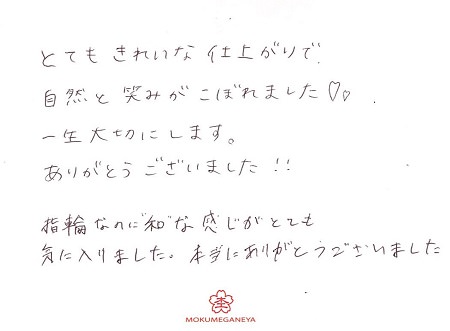 とてもきれいな仕上がりで
自然と笑みがこぼれました♡♡
一生大切にします。
ありがとうございました!!
指輪なのに"和"な感じがとても
気に入りました。本当にありがとうございました
MOKUMEGANEYA